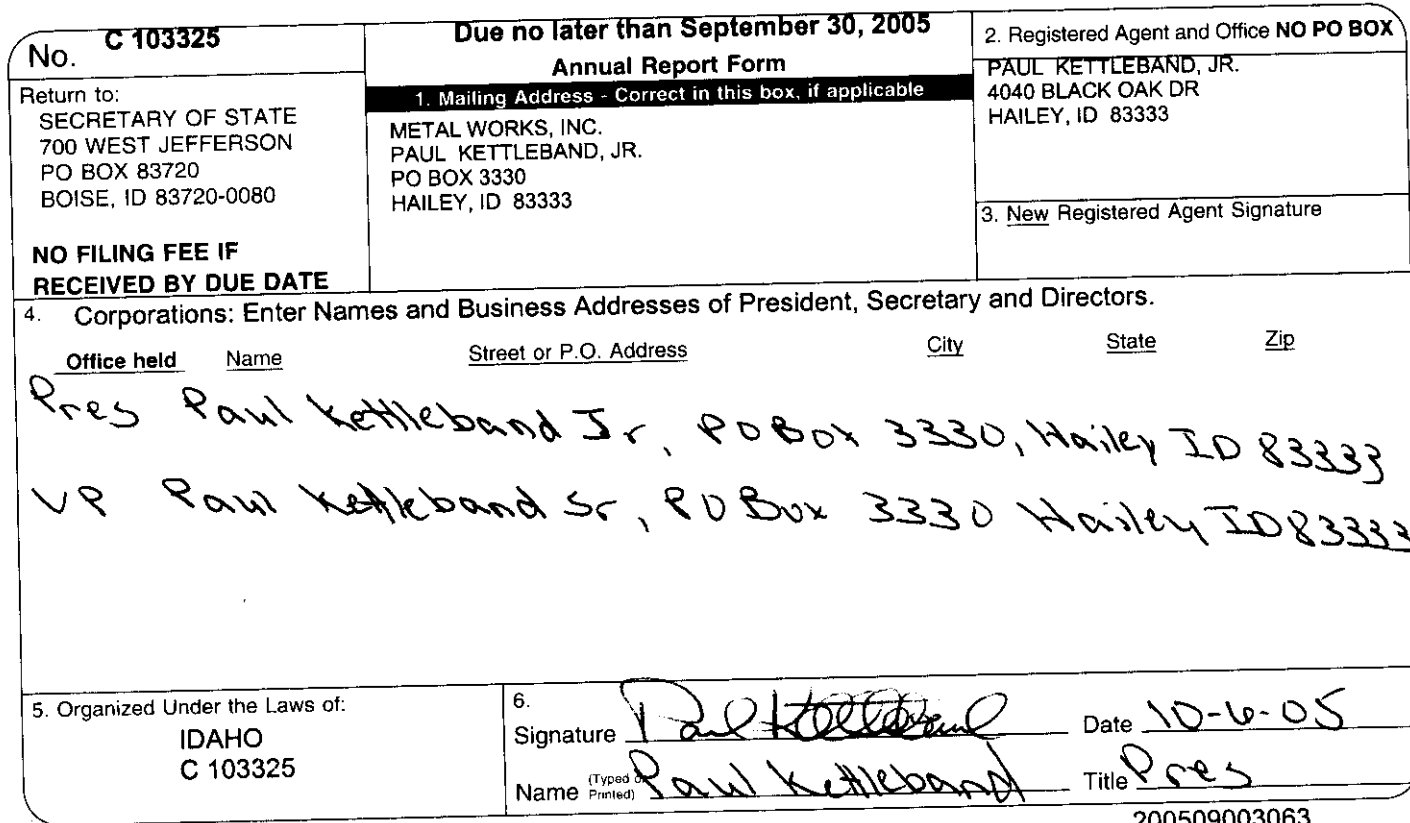 No. C 103325
Return to:
SECRETARY OF STATE
700 WEST JEFFERSON
PO BOX 83720
BOISE, ID 83720-0080
NO FILING FEE IF
RECEIVED BY DUE DATE
Due no later than September 30, 2005
Annual Report Form
1. Mailing Address - Correct in this box, if applicable
METAL WORKS, INC.
PAUL KETTLEBAND, JR.
PO BOX 3330
HAILEY, ID 83333
2. Registered Agent and Office NO PO BOX
PAUL KETTLEBAND, JR.
4040 BLACK OAK DR
HAILEY, ID 83333
3. New Registered Agent Signature
4. Corporations: Enter Names and Business Addresses of President, Secretary and Directors.
Office held Name Street or P.O. Address City State Zip
Pres Paul Kettleband Jr, PO Box 3330, Hailey ID 83333
VP Paul Kettleband Sr, PO Box 3330 Hailey ID 83333
5. Organized Under the Laws of:
IDAHO
C 103325
6.
Signature Paul Kettleband Date 10-6-05
Name (Typed or Printed) Paul Kettleband Title Pres
200509003063